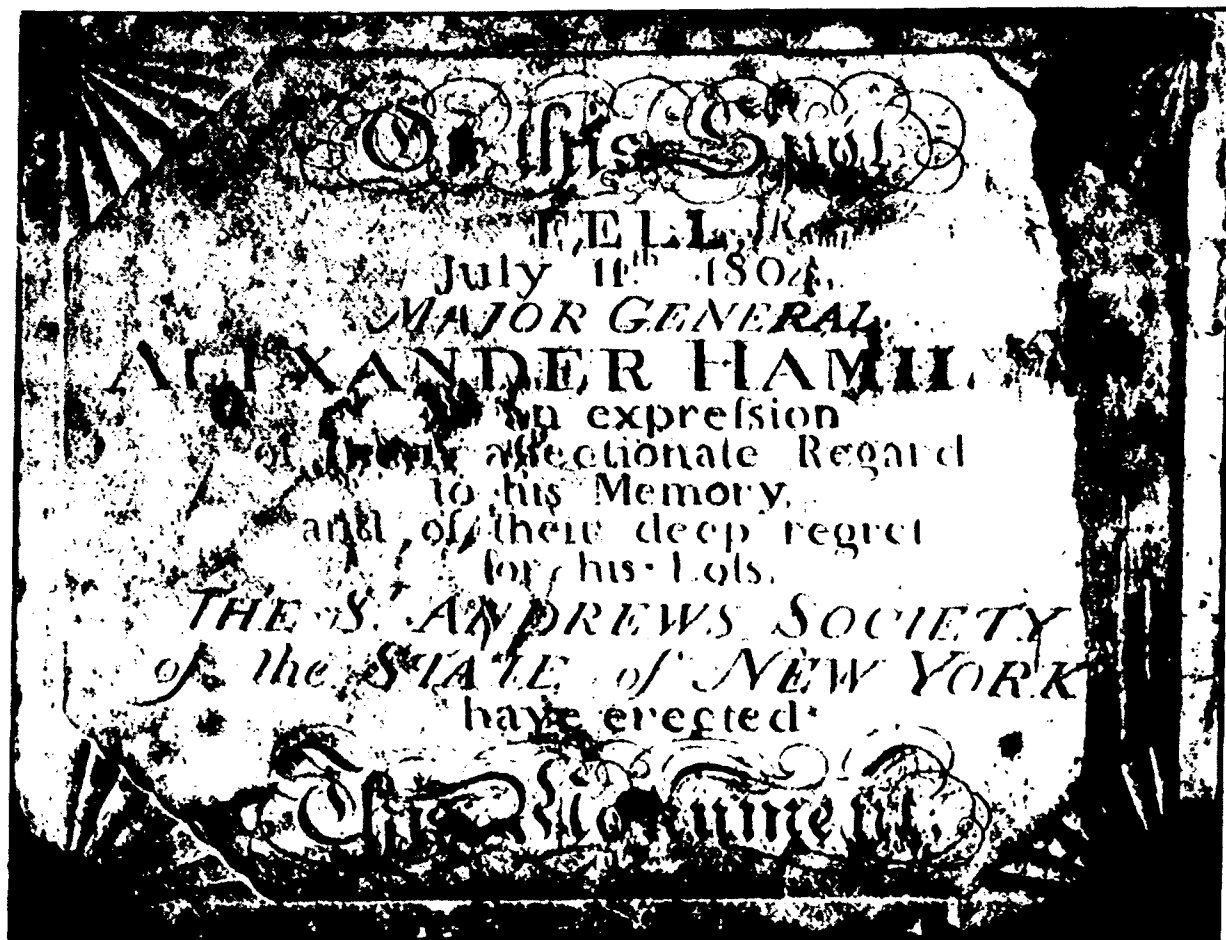 On this Spot
FELL,
July 11th 1804,
MAJOR GENERAL
ALEXANDER HAMIL
an expreſsion
of their affectionate Regard
to his Memory,
and of their deep regret
for his Loſs,
THE St ANDREWS SOCIETY
of the STATE of NEW YORK
have erected
This Monument.